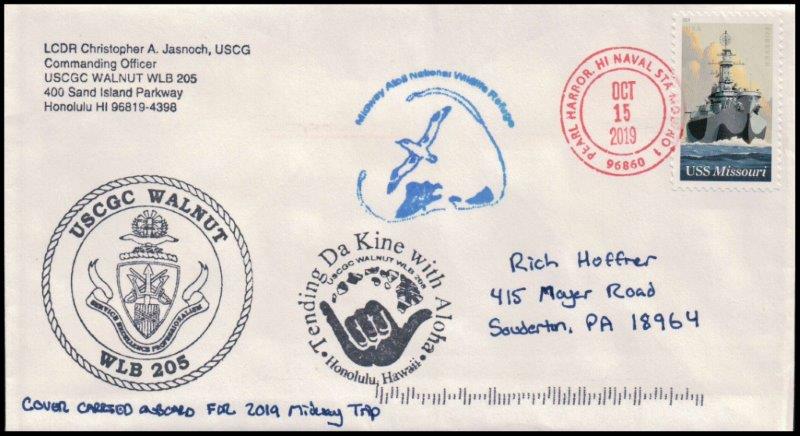 LCDR Christopher A. Jasnoch, USCG
Commanding Officer
USCGC WALNUT WLB 205
400 Sand Island Parkway
Honolulu HI 96819-4398
Midway Atoll National Wildlife Refuge
PEARL HARBOR, HI NAVAL STA MOB NO 1
OCT
15
2019
96860
USA
USS Missouri
USCGC WALNUT
SERVICE EXCELLENCE PROFESSIONALISM
WLB 205
• Tending Da Kine with Aloha •
USCGC WALNUT WLB 205
Honolulu, Hawaii
Rich Hoffner
415 Moyer Road
Souderton, PA 18964
COVER CARRIED ONBOARD FOR 2019 Midway Trip